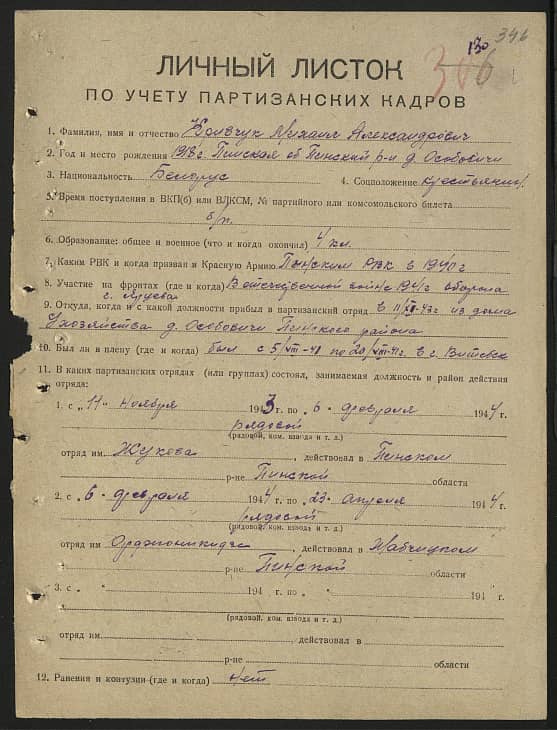 130
346
ЛИЧНЫЙ ЛИСТОК
ПО УЧЕТУ ПАРТИЗАНСКИХ КАДРОВ
1. Фамилия, имя и отчество Михаил Александрович
2. Год и место рождения 1918 г. Пинская об Пинский р-н д. Особовичи
3. Национальность Белорус 4. Соцположение крестьянин
5. Время поступления в ВКП(б) или ВЛКСМ, № партийного или комсомольского билета
б/п.
6. Образование: общее и военное (что и когда окончил) 4 кл.
7. Каким РВК и когда призван в Красную Армию Пинским РВК в 1940 г
8. Участие на фронтах (где и когда) В отечественной войне 1941 г оборона
г.
9. Откуда, когда и с какой должности прибыл в партизанский отряд в 11/XI-43 г из дома
д. Особовичи Пинского района
10. Был ли в плену (где и когда) был с 5/VIII-41 по 20/VIII-41 г. в г. Витебск
11. В каких партизанских отрядах (или группах) состоял, занимаемая должность и район действия
отряда:
1. с „11" ноября 1943 г. по „6" февраля 1944 г.
рядовой
(рядовой, ком. взвода и т. д.)
отряд им. Жукова, действовал в Пинском
р-не Пинской области
2. с „6" февраля 1944 г. по „23" апреля 1944 г.
рядовой
(рядовой, ком. взвода и т. д.)
отряд им Орджоникидзе, действовал в Жабчицком
р-не Пинской области
3. с „ " 194 г. по „ " 194 г.
(рядовой, ком. взвода и т. д.)
отряд им. действовал в
р-не области
12. Ранения и контузии (где и когда) нет